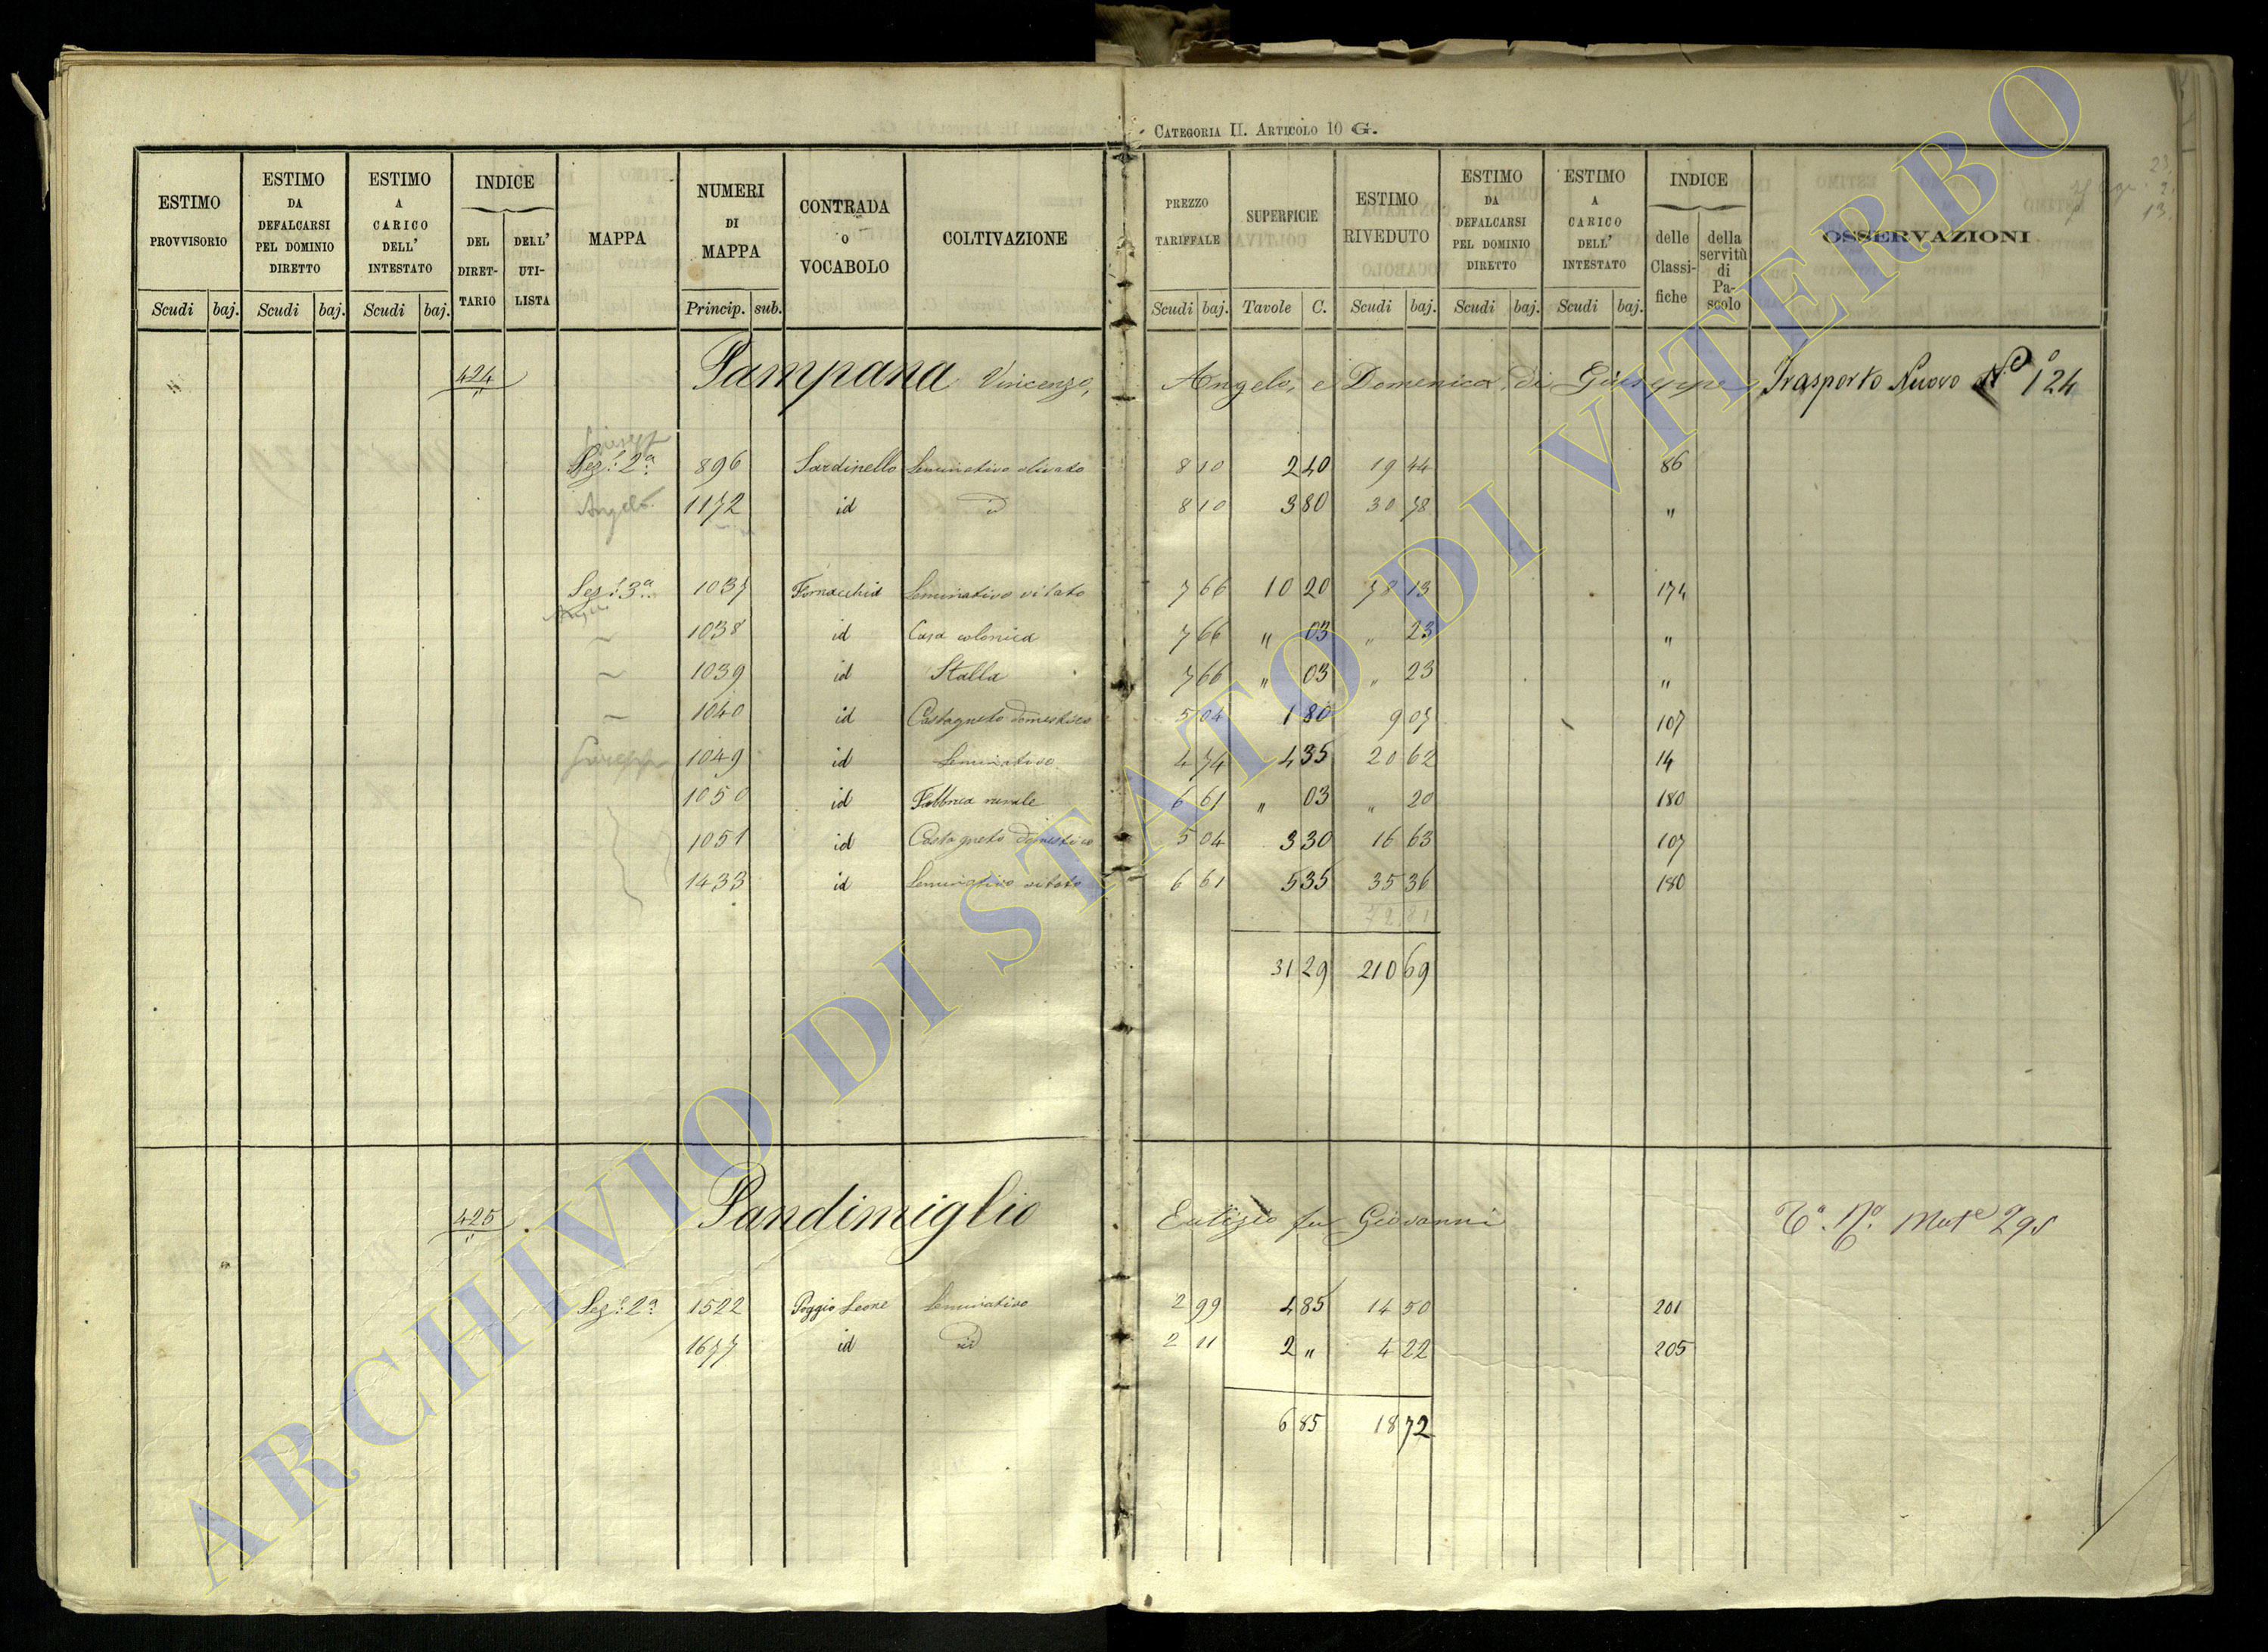 CATEGORIA II. ARTICOLO 10 G.
ESTIMO PROVVISORIO Scudi baj.
ESTIMO DA DEFALCARSI PEL DOMINIO DIRETTO Scudi baj.
ESTIMO A CARICO DELL' INTESTATO Scudi baj.
INDICE DEL DIRETTARIO DELL' UTILISTA
MAPPA
NUMERI DI MAPPA Princip. sub.
CONTRADA O VOCABOLO
COLTIVAZIONE
PREZZO TARIFFALE Scudi baj.
SUPERFICIE Tavole C.
ESTIMO RIVEDUTO Scudi baj.
ESTIMO DA DEFALCARSI PEL DOMINIO DIRETTO Scudi baj.
ESTIMO A CARICO DELL' INTESTATO Scudi baj.
INDICE delle Classifiche della servitù di Pascolo
OSSERVAZIONI
424 Pampana Vincenzo, Angelo, e Domenica, di Giuseppe Trasporto Nuovo N.° 124
Giusepp
Sez.e 2a 896 Sardinello Seminativo olivato 8 10 2 40 19 44 86
Angelo 1172 id id 8 10 3 80 30 78 "
Sez.e 3a 1037 Fornacchia Seminativo vitato 7 66 10 20 78 13 174
1038 id Casa colonica 7 66 " 03 " 23 "
1039 id Stalla 7 66 " 03 " 23 "
1040 id Castagneto domestico 5 04 1 80 9 07 107
Giuseppe 1049 id Seminativo 4 74 4 35 20 62 14
1050 id Fabbrica rurale 6 61 " 03 " 20 180
1051 id Castagneto domestico 5 04 3 30 16 63 107
1433 id Seminativo vitato 6 61 5 35 35 36 180
72 81
31 29 210 69
425 Pandimiglio Eutizio fu Giovanni T.o N.o Mat.e 295
Sez.e 2a 1522 Poggio Leone Seminativo 2 99 4 85 14 50 201
1677 id id 2 11 2 " 4 22 205
6 85 18 72
ARCHIVIO DI STATO DI VITERBO